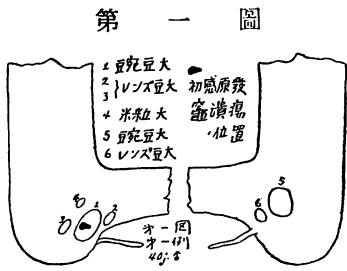 第一圖
1 豆豌豆大
2 } レンズ豆大
3
4 米粒大
5 豆豌豆大
6 レンズ豆大
初感原發
竈潰瘍
ノ位置
4
3
1
2
5
6
第一図
第一例
40j. ♀